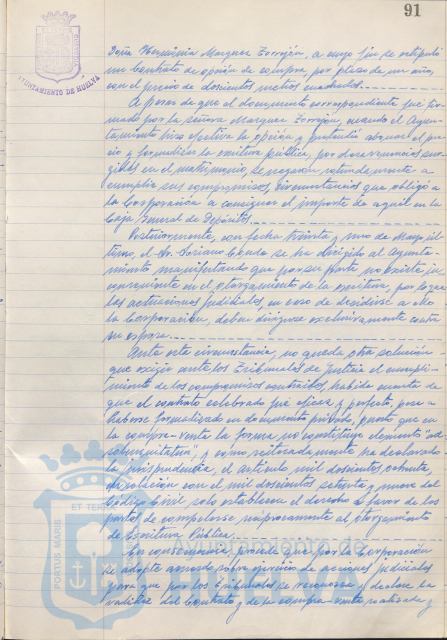 91
AYUNTAMIENTO DE HUELVA
Doña Herminia Marquez Torrejón, a cuyo fin se estipuló
un Contrato de opción de compra, por plazo de un año,
con el precio de doscientos metros cuadrados.
A pesar de que el documento correspondiente fue fir-
mado por la señora Marquez Torrejón, cuando el Ayun-
tamiento hizo efectiva la opción y pretendió abonar el pre-
cio y formalizar la escritura pública, por desavenencias sur-
gidas en el matrimonio, se negaron rotundamente a
cumplir sus compromisos, circunstancias que obligó a
la Corporación a consignar el importe de aquel en la
Caja General de Depósitos.
Posteriormente, con fecha treinta y uno de Mayo úl-
timo, el Sr. Soriano se ha dirigido al Ayunta-
miento manifestando que por su parte no existe in-
conveniente en el otorgamiento de la escritura, por lo que
las actuaciones judiciales, en caso de decidirse a ello
la Corporación, deben dirigirse exclusivamente contra
su esposa.
Ante esta circunstancia, no queda otra solución
que exigir ante los Tribunales de Justicia el cumpli-
miento de los compromisos contraídos, habida cuenta de
que el contrato celebrado fué eficaz y perfecto, pese a
haberse formalizado en documento privado, puesto que en
la compra-venta la forma no constituye elemento "ad
solemnitatem", y como reiteradamente ha declarado
la jurisprudencia, el artículo mil doscientos ochenta,
en relación con el mil doscientos setenta y nueve del
Código Civil solo establecen el derecho a favor de las
partes de compelerse recíprocamente al otorgamiento
de Escritura Pública.
En consecuencia, procede que por la Corporación
se adopte acuerdo sobre ejercicio de acciones judiciales
para que por los Tribunales se reconozca y declare la
validez del Contrato y de la compra-venta realizada y
PORTUS MARIS ET TERRAE
Ayuntamiento de
HUELVA